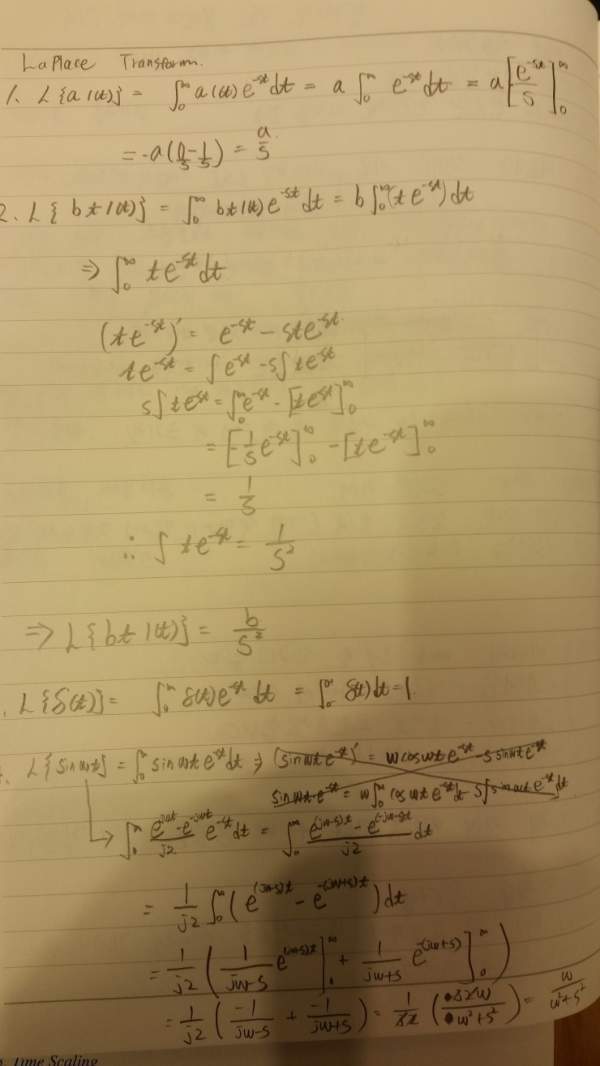 Laplace Transform.
1. L{a 1(t)} = ∫₀^∞ a 1(t) e^{-st} dt = a ∫₀^∞ e^{-st} dt = a [e^{-st}/-s]₀^∞
= -a(0/s - 1/s) = a/s
2. L{bt 1(t)} = ∫₀^∞ bt 1(t) e^{-st} dt = b ∫₀^∞ (t e^{-st}) dt
⇒ ∫₀^∞ t e^{-st} dt
(t e^{-st})' = e^{-st} - st e^{-st}
t e^{-st} = ∫ e^{-st} - s∫ t e^{-st}
s∫ t e^{-st} = ∫₀^∞ e^{-st} - [t e^{-st}]₀^∞
= [-1/s e^{-st}]₀^∞ - [t e^{-st}]₀^∞
= 1/s
∴ ∫ t e^{-st} = 1/s²
⇒ L{bt 1(t)} = b/s²
. L{δ(t)} = ∫₀^∞ δ(t) e^{-st} dt = ∫₀^∞ δ(t) dt = 1
L{sin ωt} = ∫₀^∞ sin ωt e^{-st} dt ⇒ (sin ωt e^{-st})' = ω cos ωt e^{-st} - s sin ωt e^{-st}
sin ωt e^{-st} = ω ∫₀^∞ cos ωt e^{-st} dt - s∫ sin ωt e^{-st} dt
→ ∫₀^∞ (e^{jωt} - e^{-jωt})/j2 e^{-st} dt = ∫₀^∞ (e^{(jω-s)t} - e^{(-jω-s)t})/j2 dt
= 1/j2 ∫₀^∞ (e^{(jω-s)t} - e^{-(jω+s)t}) dt
= 1/j2 (1/(jω-s) e^{(jω-s)t}|₀^∞ + 1/(jω+s) e^{-(jω+s)}]₀^∞)
= 1/j2 (-1/(jω-s) + -1/(jω+s)) = 1/j2 (j2ω/(ω²+s²)) = ω/(ω²+s²)
Time Scaling